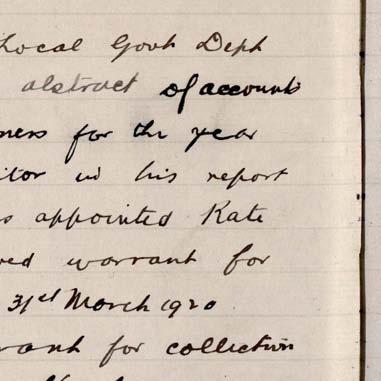 Local Govt Dept
abstract of accounts
ners for the year
itor in his report
s appointed Rate
ed warrant for
31st March 1920
rant for collection